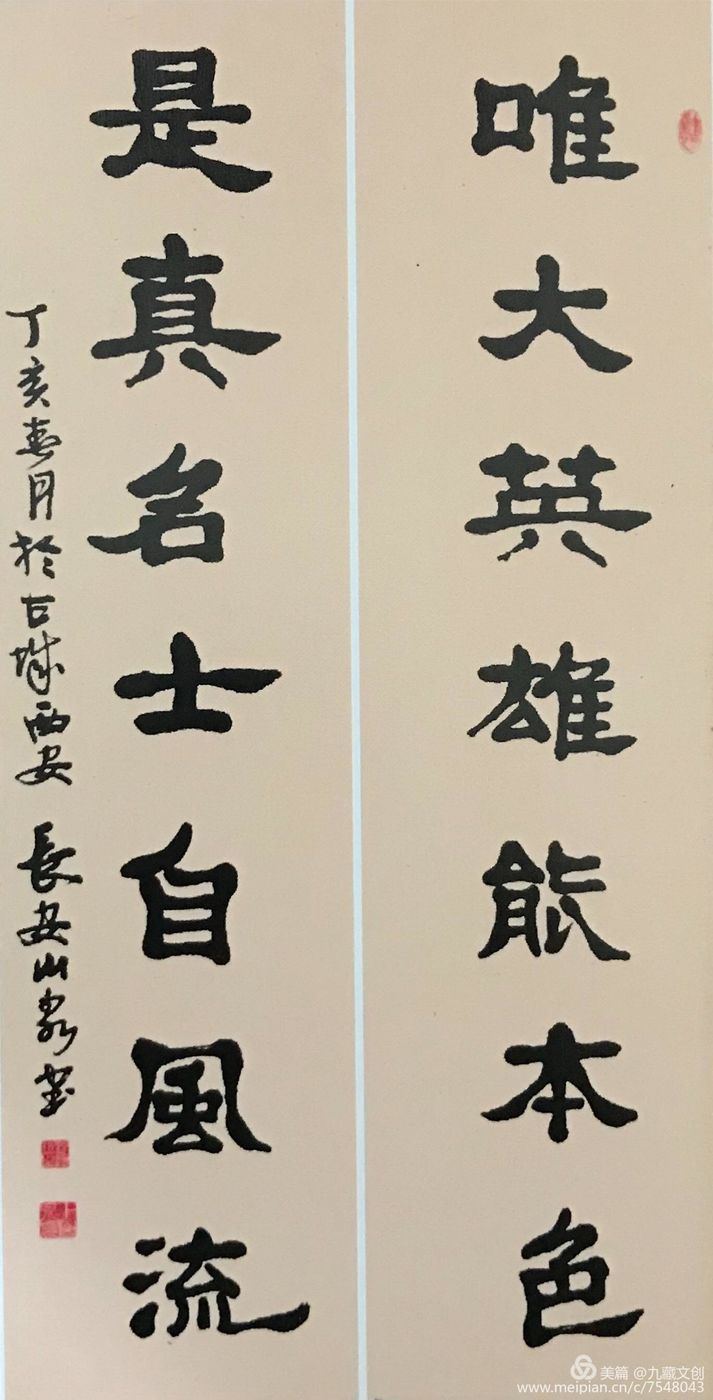 唯大英雄能本色
是真名士自風流
丁亥春月於古城西安 長安山泉書
美篇 @九藏文创
www.meipian.cn/c/7548043